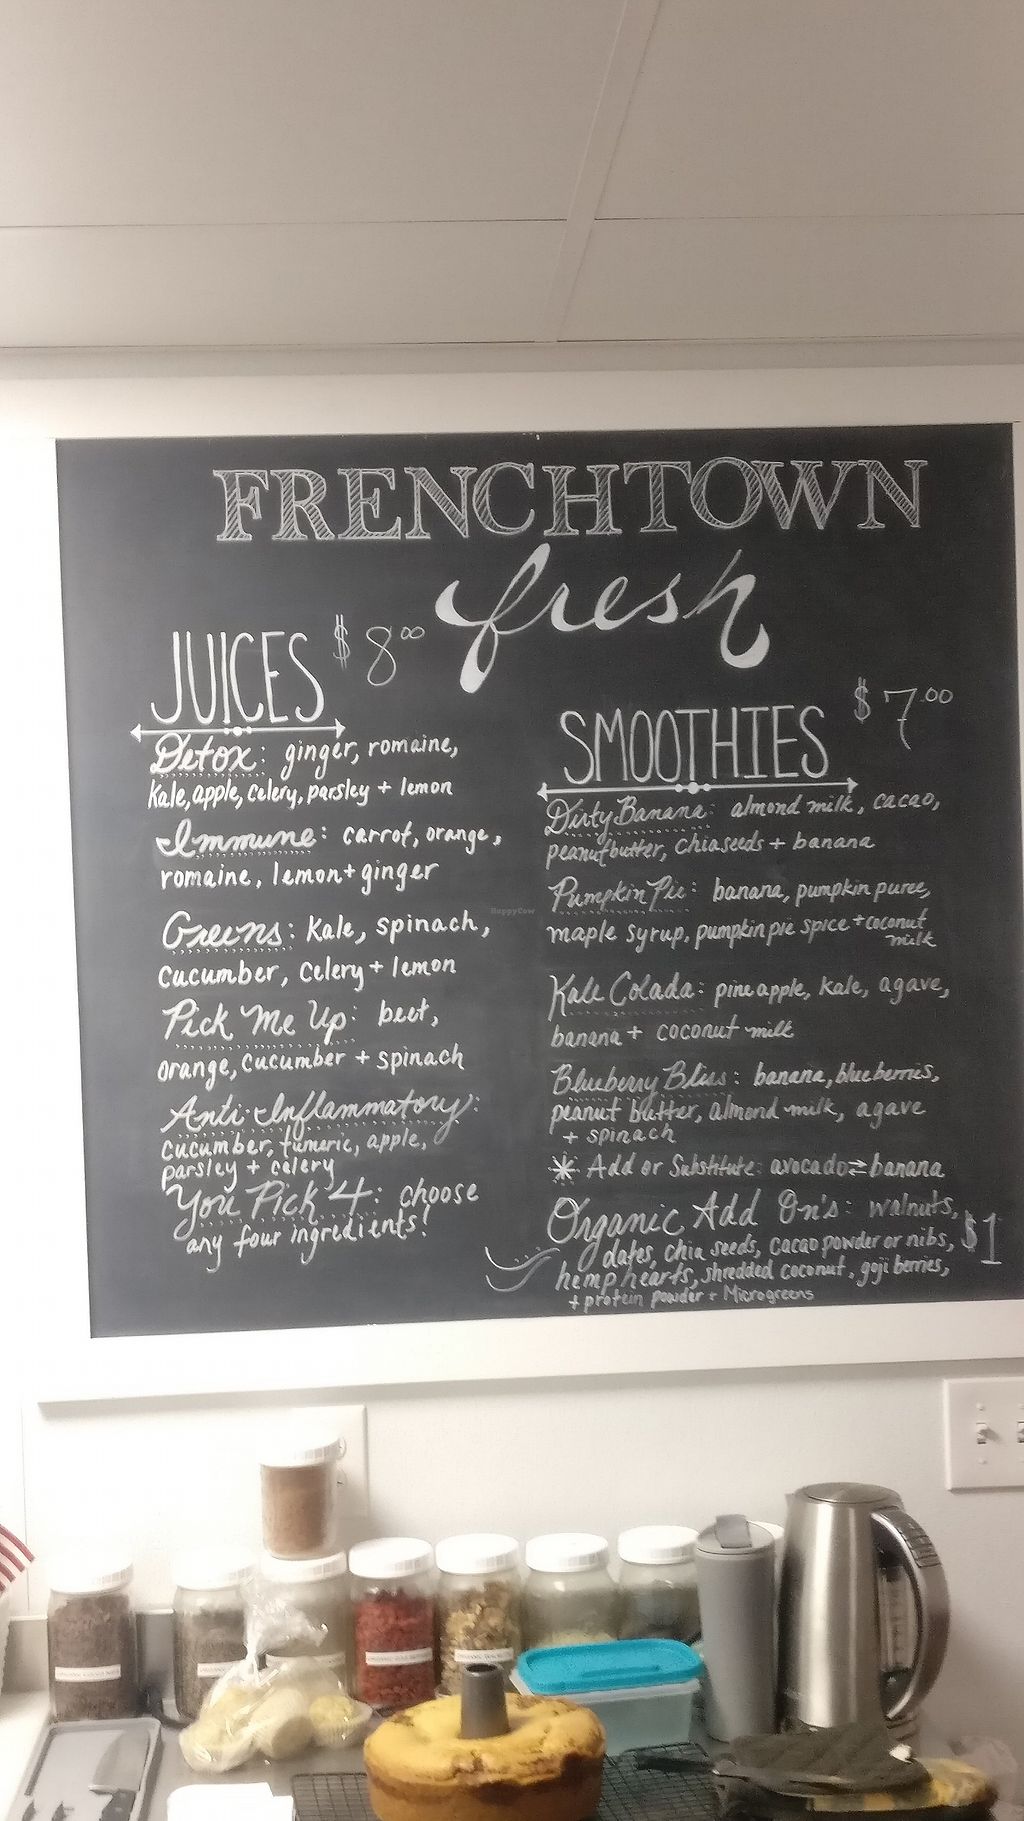 FRENCHTOWN
fresh
JUICES $8.00
Detox: ginger, romaine,
Kale, apple, celery, parsley + lemon
Immune: carrot, orange,
romaine, lemon + ginger
Greens: Kale, spinach,
cucumber, Celery + lemon
Pick Me Up: beet,
orange, cucumber + spinach
Anti-Inflammatory:
cucumber, tumeric, apple,
parsley + celery
You Pick 4: choose
any four ingredients!
SMOOTHIES $7.00
Dirty Banana: almond milk, cacao,
peanutbutter, chiaseeds + banana
Pumpkin Pie: banana, pumpkin puree,
maple syrup, pumpkin pie spice + coconut
milk
Kale Colada: pineapple, kale, agave,
banana + coconut milk
Blueberry Bliss: banana, blueberries,
peanut butter, almond milk, agave
+ spinach
* Add or Substitute: avocado ⇄ banana
Organic Add On's: walnuts, $1
dates, chia seeds, cacao powder or nibs,
hemp hearts, shredded coconut, goji berries,
+ protein powder + Microgreens
HappyCow